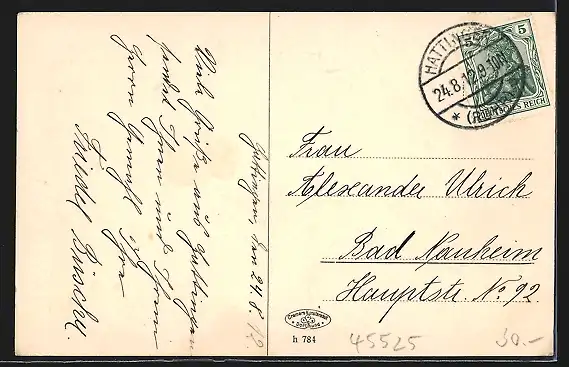 Hattingen, den 24.8.12.
Viele Grüße aus Hattingen
sendet Ihnen und Ihrem
Herrn Gemahl Ihre
Friedel
HATTINGEN
24.8.12.8-10N.
* (RUHR)
5
DEUTSCHES REICH
Frau
Alexander Ulrich
Bad Nauheim
Hauptstr. No 92.
Cramers Kunstanstalt
Dortmund
h 784
45525
30.-